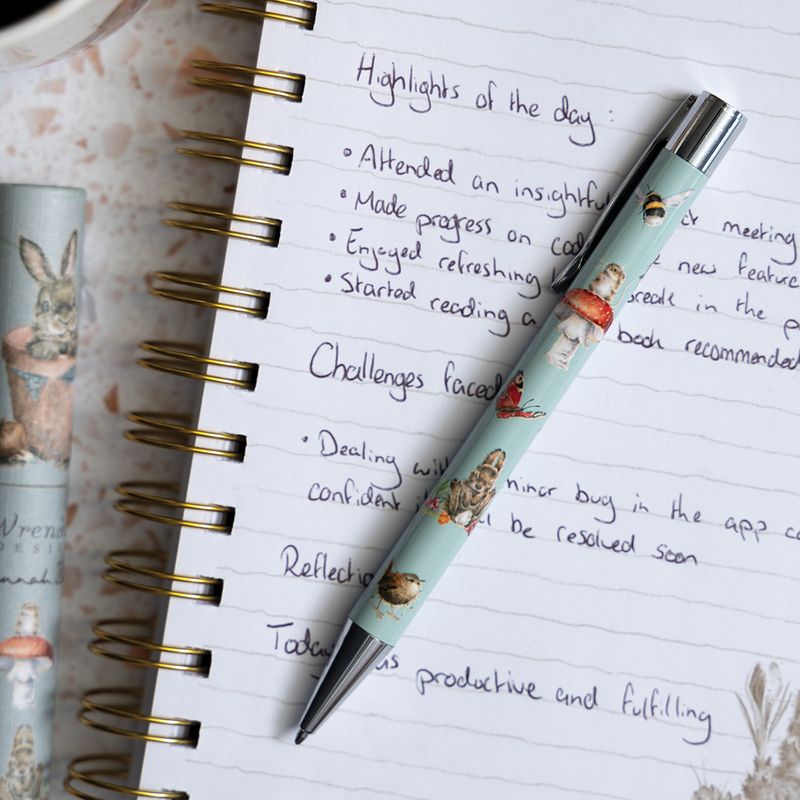 Highlights of the day:
• Attended an insightful meeting
• Made progress on new feature
• Enjoyed refreshing break in the
• Started reading a book recommended
Challenges faced
• Dealing with minor bug in the app
confident be resolved soon
Reflection
Today was productive and fulfilling
Wren
DESI
annah